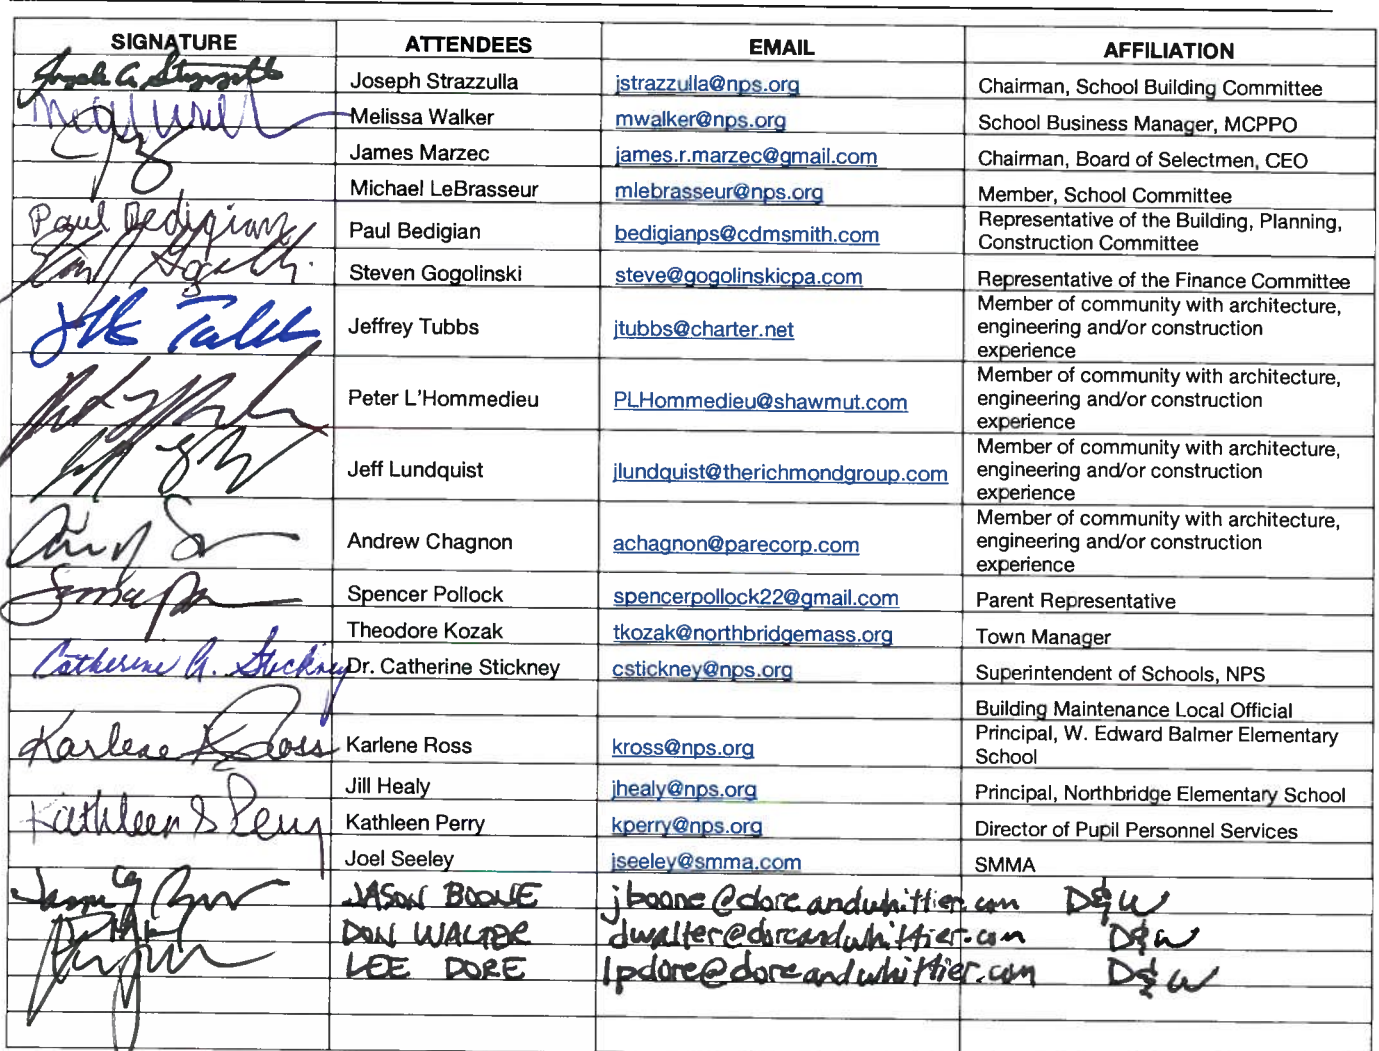 SIGNATURE ATTENDEES EMAIL AFFILIATION
Joseph Strazzulla jstrazzulla@nps.org Chairman, School Building Committee
Melissa Walker mwalker@nps.org School Business Manager, MCPPO
James Marzec james.r.marzec@gmail.com Chairman, Board of Selectmen, CEO
Michael LeBrasseur mlebrasseur@nps.org Member, School Committee
Paul Bedigian Paul Bedigian bedigianps@cdmsmith.com Representative of the Building, Planning,
Construction Committee
Steven Gogolinski steve@gogolinskicpa.com Representative of the Finance Committee
Jeffrey Tubbs jtubbs@charter.net Member of community with architecture,
engineering and/or construction
experience
Peter L'Hommedieu PLHommedieu@shawmut.com Member of community with architecture,
engineering and/or construction
experience
Jeff Lundquist jlundquist@therichmondgroup.com Member of community with architecture,
engineering and/or construction
experience
Andrew Chagnon achagnon@parecorp.com Member of community with architecture,
engineering and/or construction
experience
Spencer Pollock spencerpollock22@gmail.com Parent Representative
Theodore Kozak tkozak@northbridgemass.org Town Manager
Catherine A. Stickney Dr. Catherine Stickney cstickney@nps.org Superintendent of Schools, NPS
Building Maintenance Local Official
Karlene Ross Karlene Ross kross@nps.org Principal, W. Edward Balmer Elementary
School
Jill Healy jhealy@nps.org Principal, Northbridge Elementary School
Kathleen S Perry Kathleen Perry kperry@nps.org Director of Pupil Personnel Services
Joel Seeley jseeley@smma.com SMMA
JASON BOONE jboone@doreandwhittier.com D&W
DON WALTER dwalter@doreandwhittier.com D&W
LEE DORE lpdore@doreandwhittier.com D&W